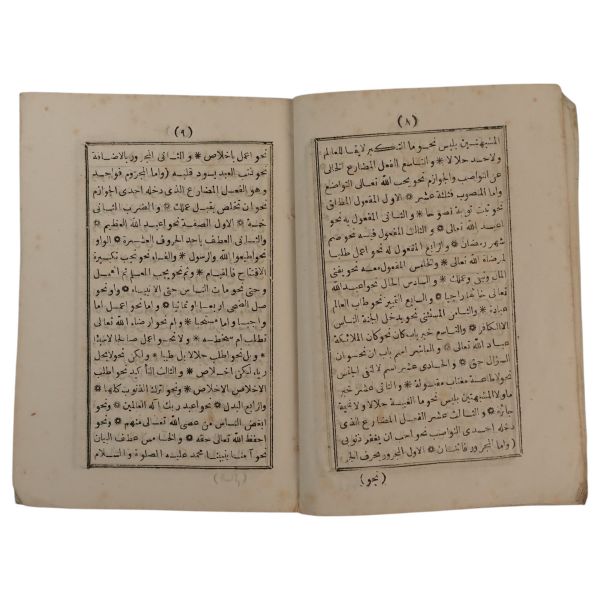 (٨)
المشبهتين بليس نحو ما التكبر لايقا للعالم
ولا حد حلالا * والتاسع الفعل المضارع الخالى
عن النواصب والجوازم نحو يحب الله تعالى التواضع
واما المنصوب فثلثة عشر * الاول المفعول المطلق
نحو تبت توبة نصوحا * والثانى المفعول به نحو
اعبد الله تعالى * والثالث المفعول فيه نحو صم
شهر رمضان * والرابع المفعول له نحو اعمل طلبا
لمرضاة الله تعالى * والخامس المفعول معه نحو يفنى
المال وتبقى وعملك * والسادس الحال نحو اعبد الله
تعالى خائفا راجيا * والسابع التمييز نحو طاب العالم
عبادة * والثامن المستثنى نحو يدخل الجنة الناس
الا الكافر * والتاسع خبر باب كان نحو كان الملائكة
عباد الله تعالى * والعاشر اسم باب ان نحو ان
السؤال حق * والحادى عشر اسم لا لنفى الجنس
نحو لا طاعة مغتاب مقبولة * والثانى عشر خبر
ما ولا المشبهتين بليس نحو ما الغيبة حلالا ولا نميمة
جائزة * والثالث عشر الفعل المضارع الذى
دخله احدى النواصب نحو احب ان يغفر ذنوبى
واما المجرور فاثنتان * الاول المجرور بحرف الجر
(نحو)
(٩)
نحو اعمل باخلاص * والثانى المجرور بالاضافة
نحو ذنب العبد يسود قلبه * واما المجزوم فواحد
وهو الفعل المضارع الذى دخله احدى الجوازم
نحو ان تخلص يقبل عملك * والضرب الثانى
خمسة * الاول الصفة نحو اعبد الله العظيم *
والثانى العطف باحد الحروف العشرة * الواو
نحو اطيعوا الله والرسول * والفاء نحو يجب تكبيرة
الافتتاح فالقيام * وثم نحو يجب العلم ثم العمل
وحتى نحو مات الناس حتى الانبياء * واو نحو
صل الضحى اربعا او ثمانيا * واما نحو اعمل اما
واجبا واما مستحبا * وام نحو ارضاء الله تعالى
تطلب ام سخطه * ولا نحو اعمل صالحا لا سيئا
* وبل نحو اطلب حلالا بل طيبا * ولكن نحو لا يحل
رياء لكن اخلاص * والثالث التأكيد نحو اطلب
الاخلاص الاخلاص * ونحو اترك الذنوب كلها *
والرابع البدل * نحو اعبد ربك اله العالمين * ونحو
ابغض الناس من عصى الله تعالى منهم * ونحو
احفظ الله تعالى حقه * والخامس عطف البيان
نحو آمنا بنبينا محمد عليه الصلوة والسلام